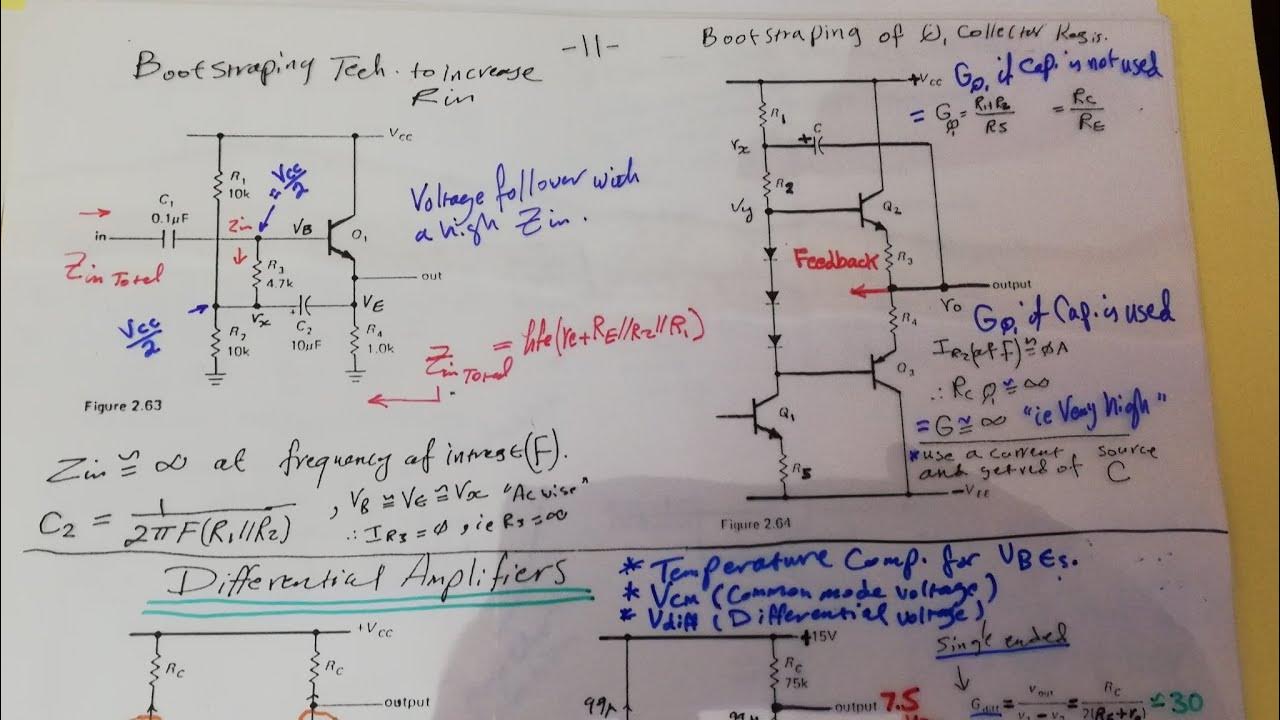 -11-
Bootstraping Tech. to increase
Rin
Vcc
R1
10k
Vcc/2
C1
0.1µF
in
Zin
VB
Q1
Zin Total
R3
4.7k
out
Vx
C2
10µF
VE
Vcc/2
R2
10k
R4
1.0k
Voltage follower with
a high Zin.
Zin Total = hfe(re+RE//R2//R1)
Figure 2.63
Zin ≅ ∞ at frequency of intrest(F).
C2 = 1/2πF(R1//R2) , VB ≅ VE ≅ Vx "Ac wise"
∴ IR3 = ϕ, ie R3 = ∞
Bootstraping of Q1 Collector Resis.
+Vcc
GQ1 if Cap. is not used
= GQ1 = R1+R2/R5 = RC/RE
R1
C
Vx
R2
Vy
Q2
Feedback
R3
output
Vo
R4
Q3
Q1
R5
-VEE
GQ1 if Cap. is used
IR2(at F) ≅ ϕA
∴ RC Q1 ≅ ∞
= G ≅ ∞ "ie Very high"
*use a current source
and get red of C
Figure 2.64
Differential Amplifiers
* Temperature Comp. for VBEs.
* VCM (Common mode voltage)
* Vdiff (Differential voltage)
+Vcc
RC
RC
output
+15V
RC
75k
output 7.5
99µ
Single ended
Gdiff = Vout/V1-V2 = RC/2(RE+re) ≅ 30